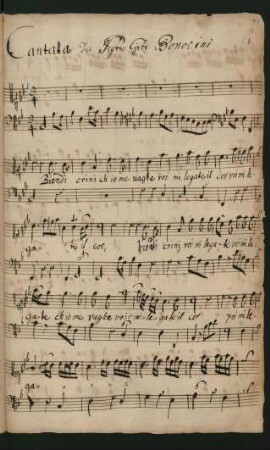 Cantata Del Sigre Gio: Bononcini
Biondi crini ch'io me vaghe voi mi legate il cor voi mi le-
ga- te il cor, Biondi crini voi mi lega-te voi mi le-
ga-te ch'io me vaghe voi mi le-gate il cor voi mi le-
ga-